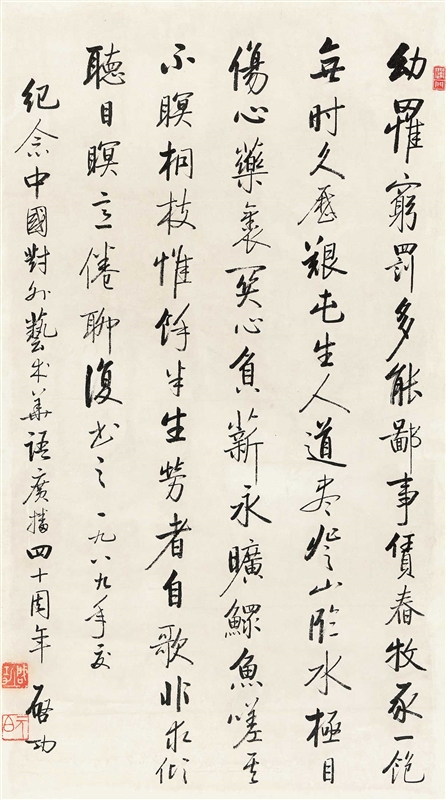 幼罹窮罰多能鄙事賃舂牧豕一飽
無时久歷艱屯生人道盡登山臨水極目
傷心藥裹関心負薪永曠鰥魚嗟其
不瞑桐枝惟餘半生勞者自歌非求傾
聽目瞑意倦聊復书之一九八九年夏
紀念中國對外藝术華語廣播四十周年 啓功
啓功
元白